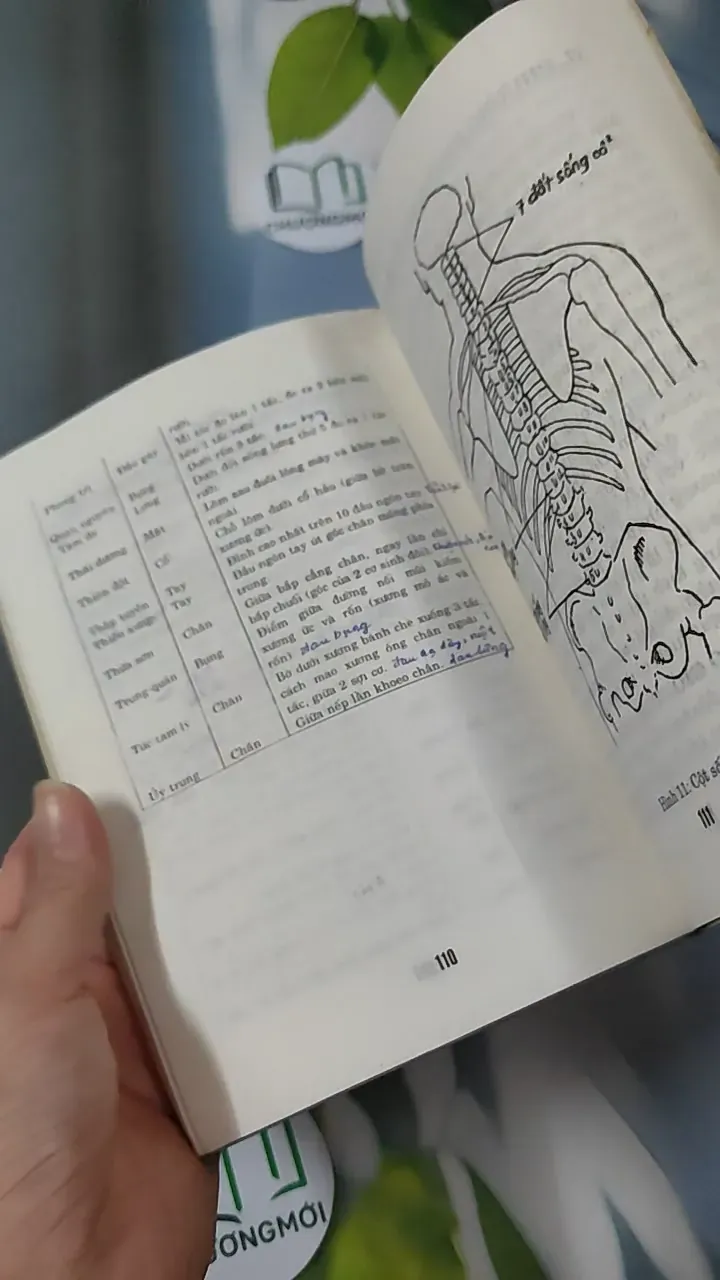 Phong trì Đầu gáy
rưỡi.
lên 1 tấc rưỡi
Quan nguyên Bụng Dưới rốn 3 tấc. đau bụng
Tâm du Lưng Dưới đốt sống lưng thứ 5 đo ra 1 tấc
rưỡi.
Thái dương Mắt Lõm sau đuôi lông mày và khóe mắt
ngoài
Thiên đột Cổ Chỗ lõm dưới cổ hầu (giữa bờ trên
xương ức)
Thập tuyên Tay Đỉnh cao nhất trên 10 đầu ngón tay
Thiếu xung Tay Đầu ngón tay út góc chân móng phía
trong
Thừa sơn Chân Giữa bắp cẳng chân, ngay lằn chỉ
bắp chuối (góc của 2 cơ sinh đôi).
Trung quản Bụng Điểm giữa đường nối mũi kiếm
xương ức và rốn (xương mỏ ác và
rốn) đau bụng
Túc tam lý Chân Bờ dưới xương bánh chè xuống 3 tấc,
cách mào xương ống chân ngoài 1
tấc, giữa 2 sợi cơ. đau dạ dày, ruột
Ủy trung Chân Giữa nếp lằn khoeo chân. đau lưng
110
7 đốt sống cổ
Hình 11: Cột số
111
ƯƠNGMỚI